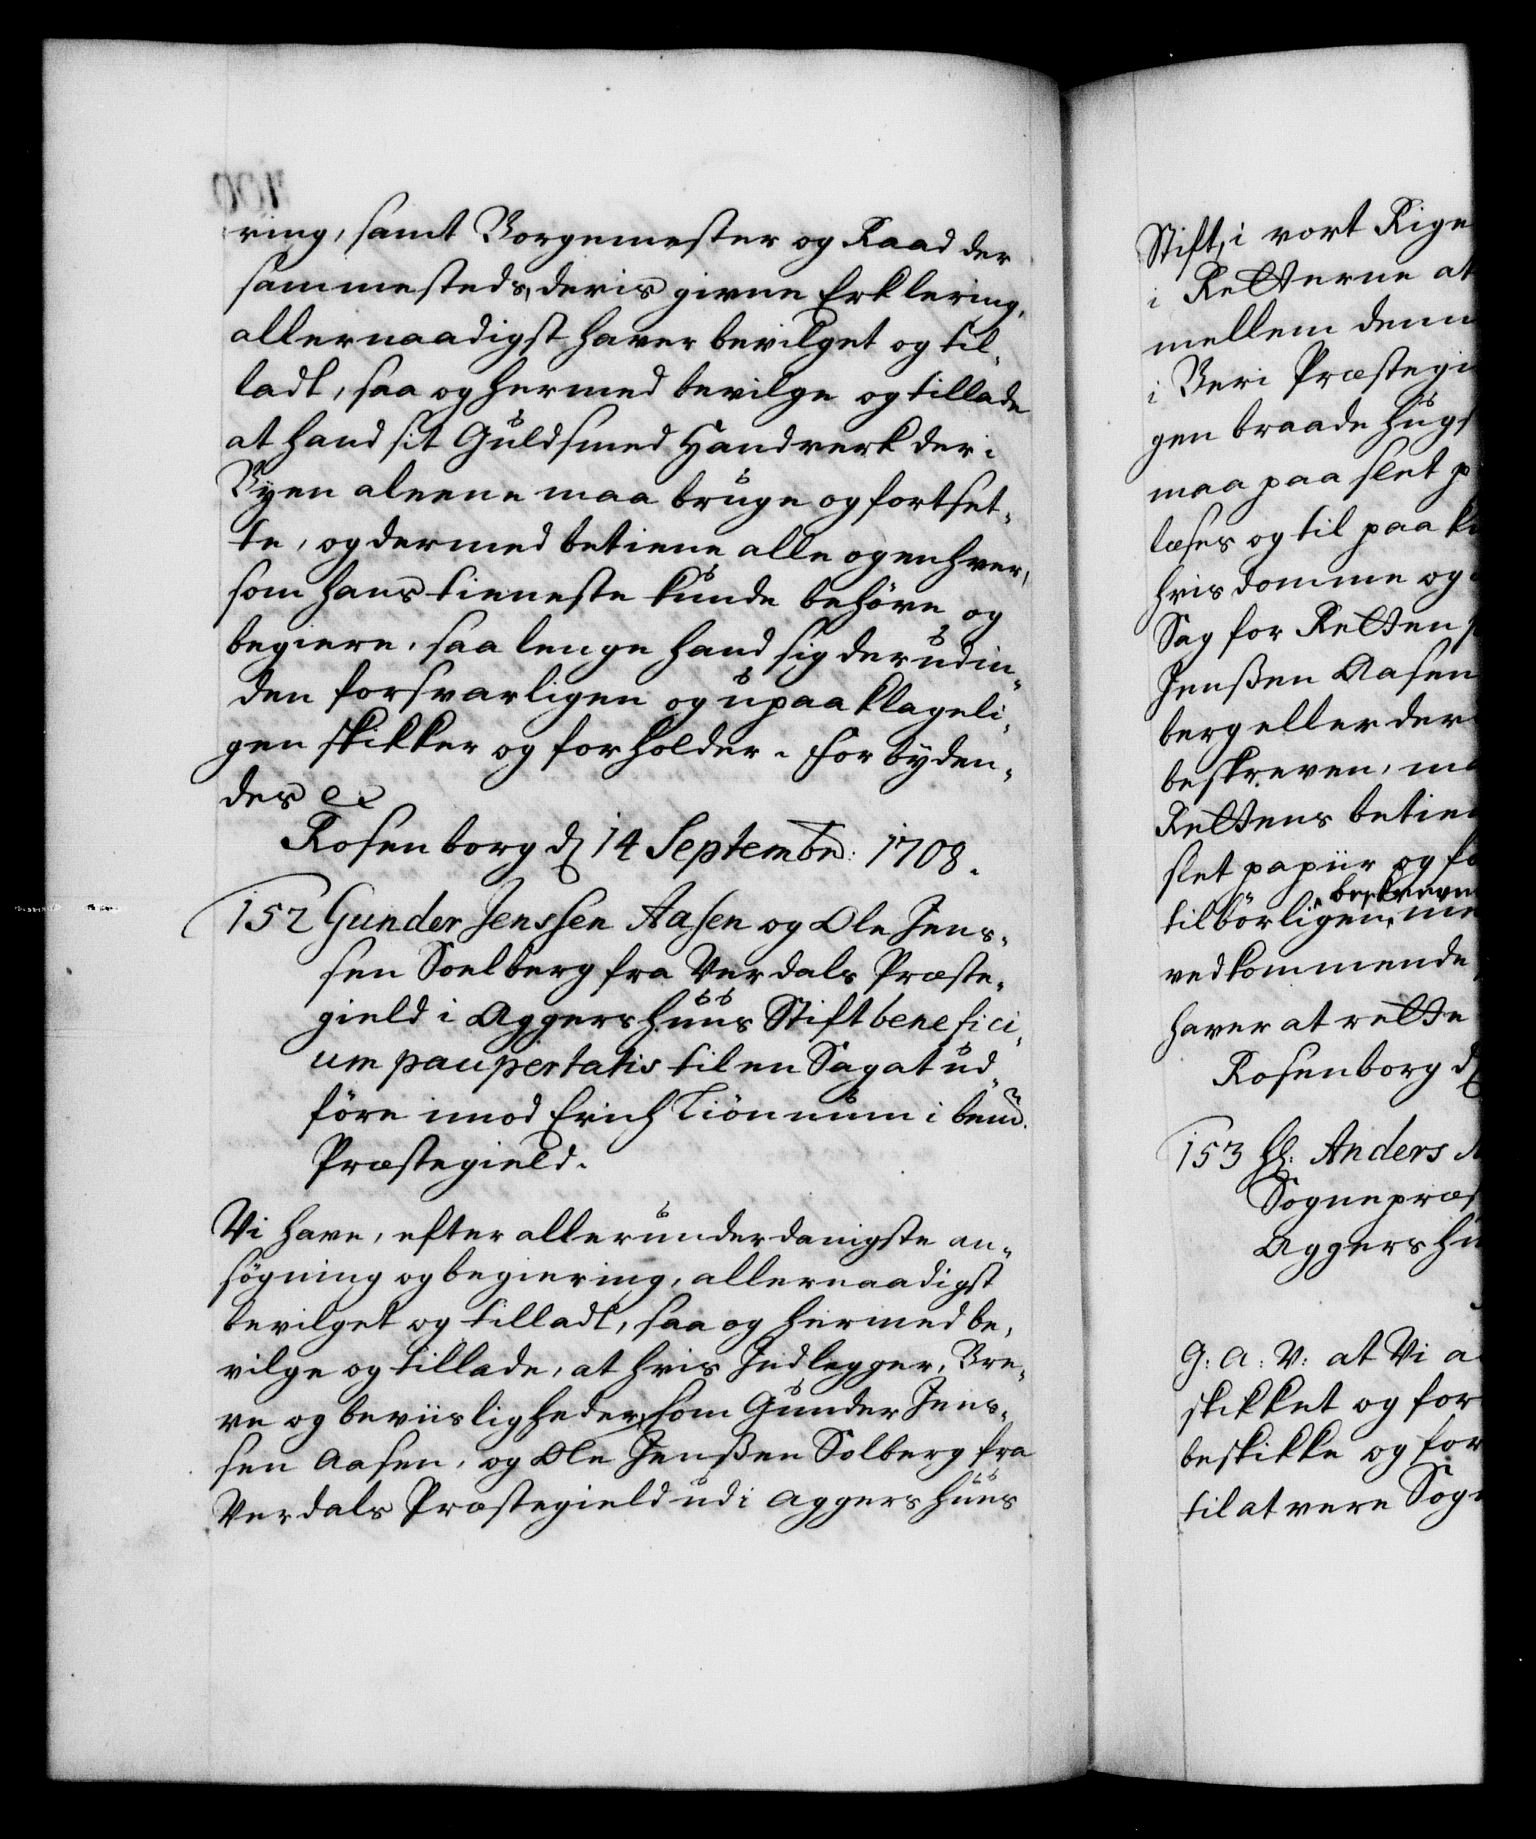 ring, samt Borgemester og Raad der
sammesteds, deris givne Erklering,
allernaadigst haver bevilget og til-
ladt, saa og hermed bevilge og tillade
at hand sit Guldsmed Handverk der i
Byen aleene maa bruge og fortset-
te, og dermed betiene alle og enhver,
som hans tieneste kunde behöve og
begiere, saa lenge hand sig derudin-
den forsvarligen og upaaklageli-
gen skikker og forholder. Forbyden-
des &c
Rosenborg d. 14 Septembr: 1708.
152 Gunder Jenssen Aasen og Ole Jens-
sen Soelberg fra Verdals Præste-
gield i Aggershuus Stift benefici-
um paupertatis til en Sag at ud-
före imod Erich Tiönnum i bemt.
Præstegield.
Vi have, efter allerunderdanigste an-
søgning og begiering, allernaadigst
bevilget og tilladt, saa og hermed be-
vilge og tillade, at hvis Indlegger, Bre-
ve og beviisligheder, som Gunder Jens-
sen Aasen, og Ole Jenßen Solberg fra
Verdals Præstegield udi Aggershuus
Stift, i vort Rige
i Retterne at
mellem denn
i Beri Præstegi
gen braade hugs
maa paa slet p
læses og til paa k
hvis domme og
Sag for Retten
Jenßen Aasen
berg eller der
beskreven, m
Rettens betien
slet papiir og fo
beskreven
tilbörligen, me
vedkommende
haver at rette
Rosenborg d.
153 Hr: Anders
Sognepræs
Aggershu
G: A: V: at Vi a
skikket og for
beskikke og for
til at være Sogn